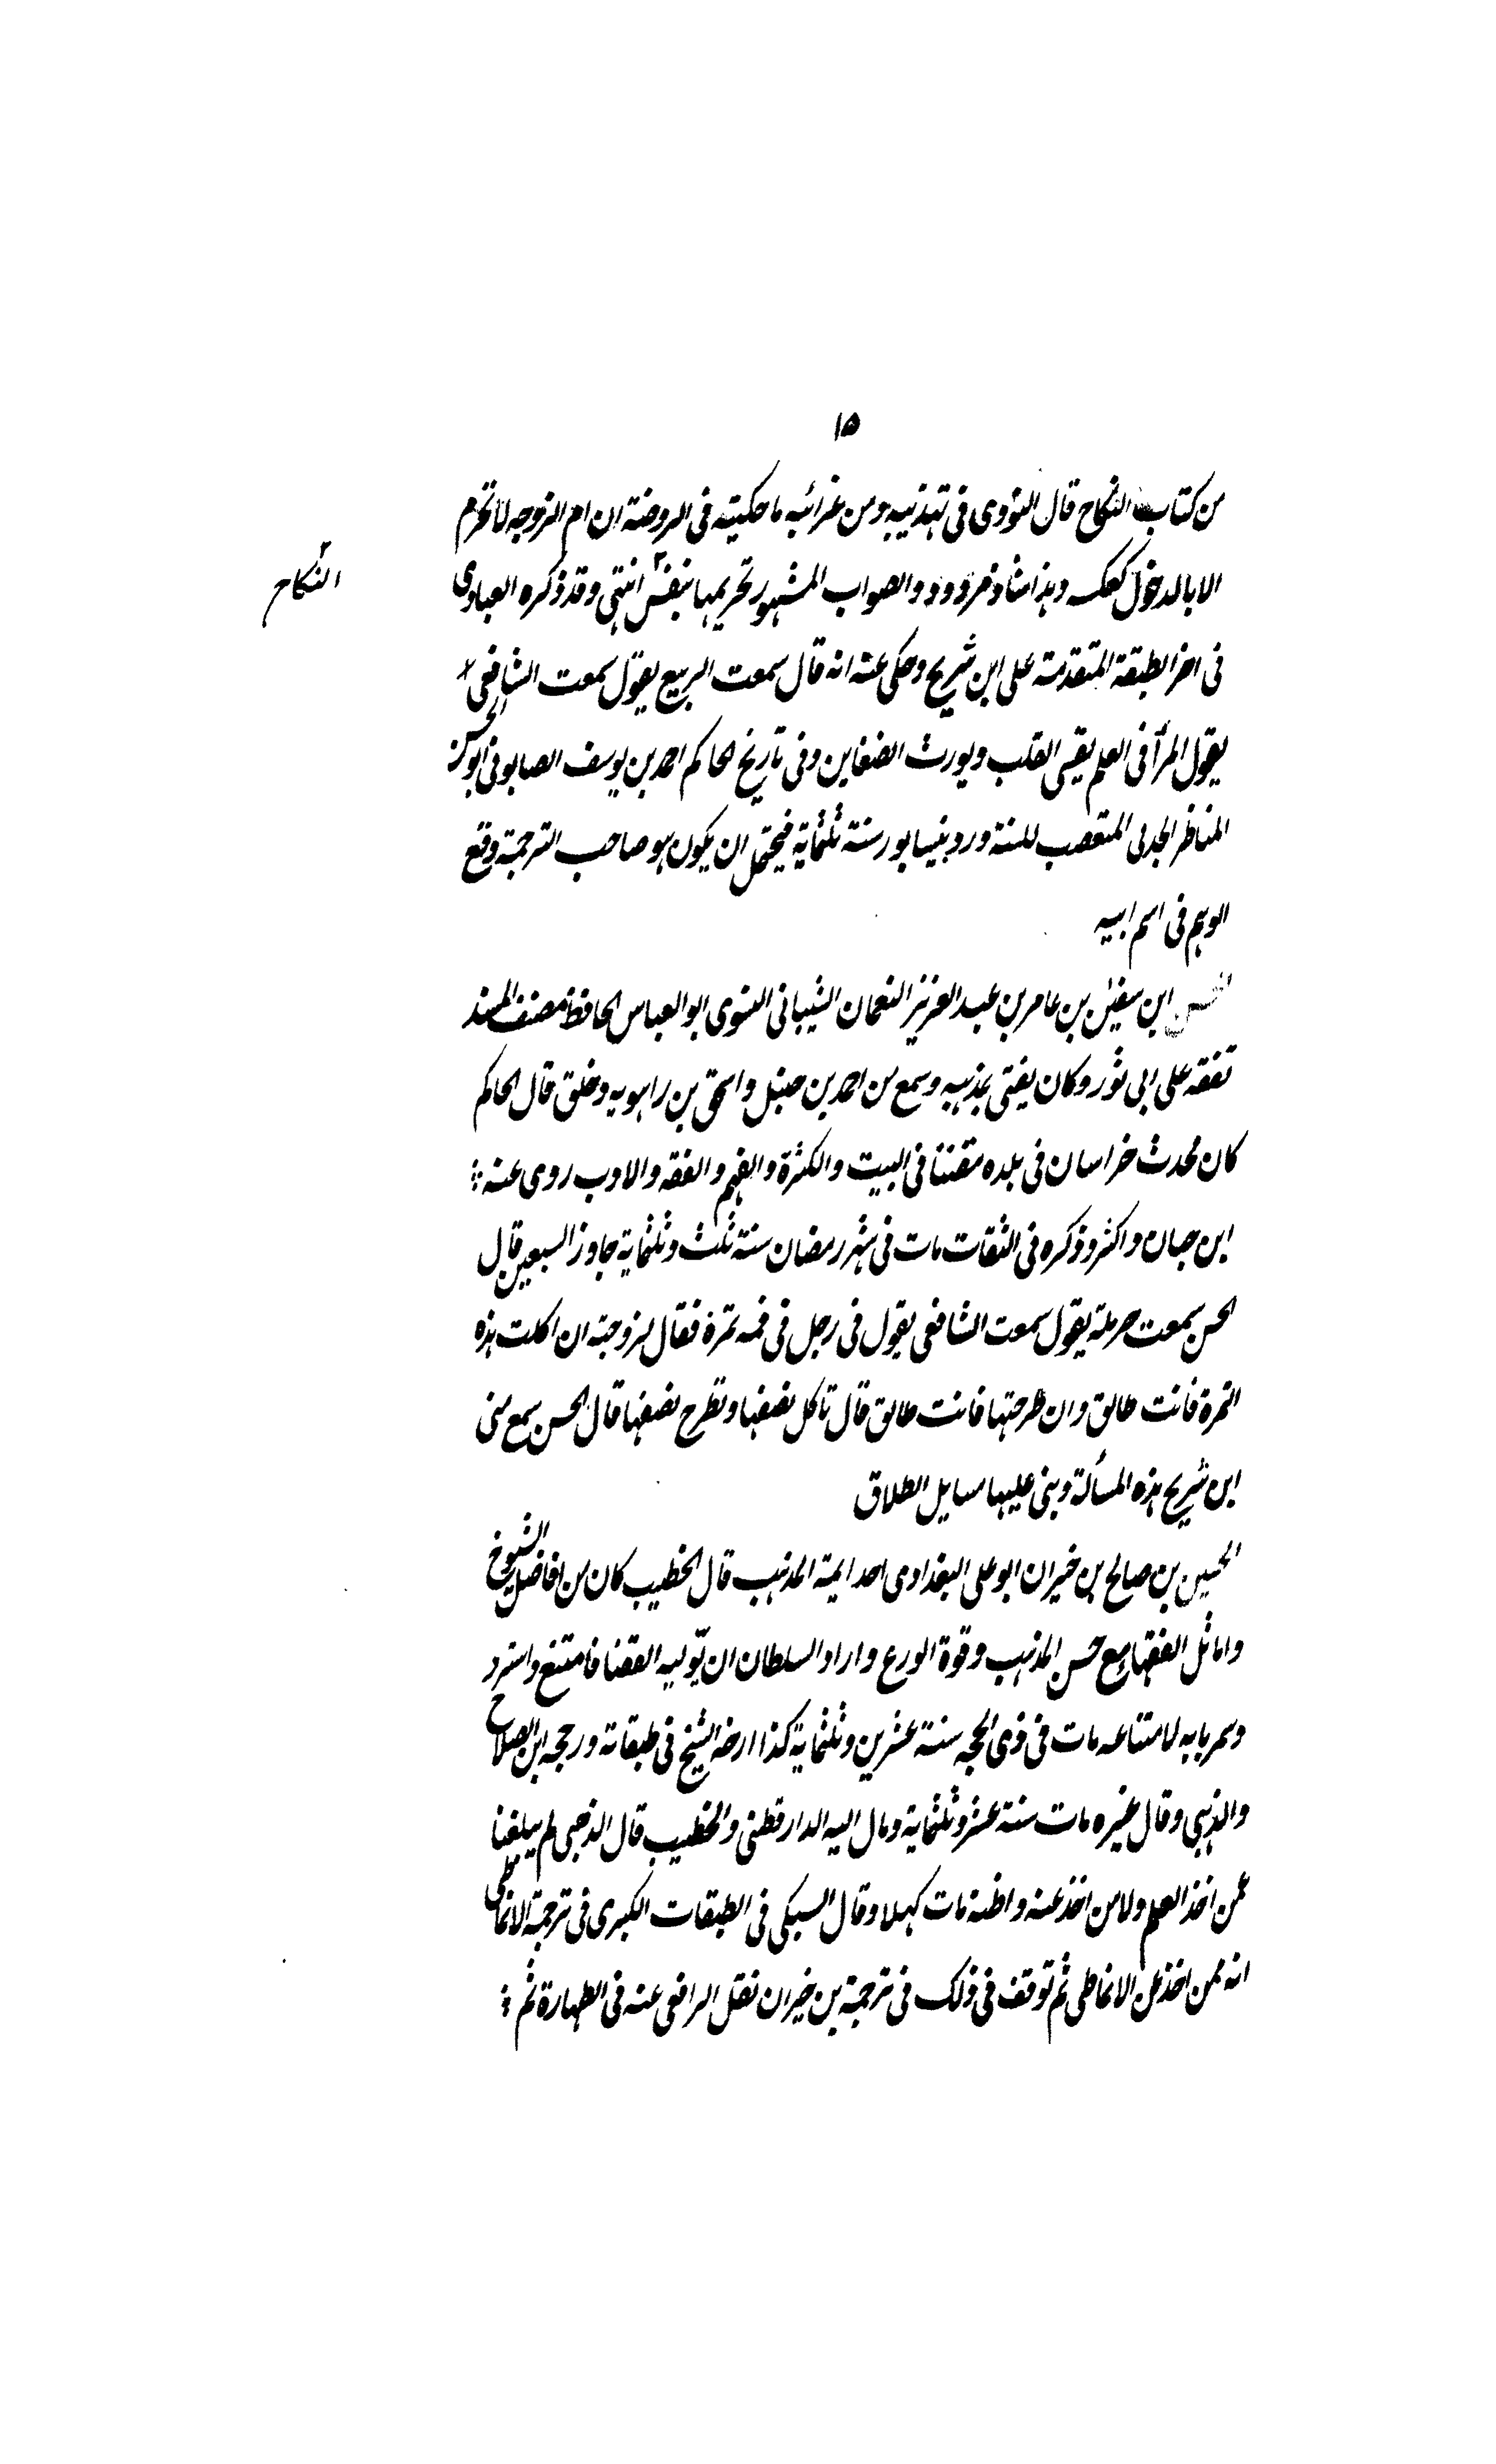 ١٥
من كتاب النكاح قال النووى فى تهذيبه ومن غرائبه ما حكيته فى الروضة ان ام الزوجه لا تحرم
الا بالدخول كعكسه وهذا شاذ مردود والصواب المشهور تحريمها بنفس انتهى وقد ذكره العبادى
النكاح
فى اخر الطبقة المتقدمة على ابن شريح وحكى عنه انه قال سمعت الربيع يقول سمعت الشافعى
يقول المرأ فى العلم يقسى القلب ويورث الضغاين وفى تاريخ الحاكم احمد بن يوسف الصابونى ابو الحسن
المناظر الجدلى المتعصب للسنة ورد نيسابور سنة ثلثماية فيحتمل ان يكون هو صاحب الترجمة وقع
الوهم فى اسم ابيه
الحسن ابن سفين بن عامر بن عبد العزيز النعمان الشيبانى النسوى ابو العباس الحافظ مصنف المسند
تفقه على ابى ثور وكان يفتى بمذهبه وسمع من احمد بن حنبل واسحق بن راهويه وخلق قال الحاكم
كان محدث خراسان فى بلده مقننا فى البيت والكثرة والفهم والفقه والادب روى عنه
ابن حبان واكثر وذكره فى الثقات مات فى شهر رمضان سنة ثلث وثلثماية جاوز السبعين قال
الحسن سمعت حرملة يقول سمعت الشافعى يقول فى رجل فى فمه تمرة فقال لزوجته ان اكلت هذه
التمرة فانت طالق وان طرحتها فانت طالق قال تاكل نصفها وتطرح نصفها قال الحسن سمع منى
ابن شريح هذه المسألة وبنى عليها مسايل الطلاق
الحسين بن صالح بن خيران ابو على البغدادى احد ايمة المذهب قال الخطيب كان من افاضل الشيوخ
واماثل الفقها مع حسن المذهب وقوة الورع واراد السلطان ان يوليه القضا فامتنع واسترد
وسمر بابه لامتناعه مات فى ذى الحجه سنة عشرين وثلثماية كذا ارخه الشيخ فى طبقاته ورجحه ابن الصلاح
والذهبى وقال غيره مات سنة عشر وثلثماية ومال اليه الدارقطنى والخطيب قال الذهبى لم يبلغنا
عمن اخذ العلم ولا من اخذ عنه واظنه مات كهلا وقال السبكى فى الطبقات الكبرى فى ترجمة الانماطى
انه ممن اخذ عن الانماطى ثم توقف فى ذلك فى ترجمة بن خيران نقل الرافعى عنه فى الطهارة ثم